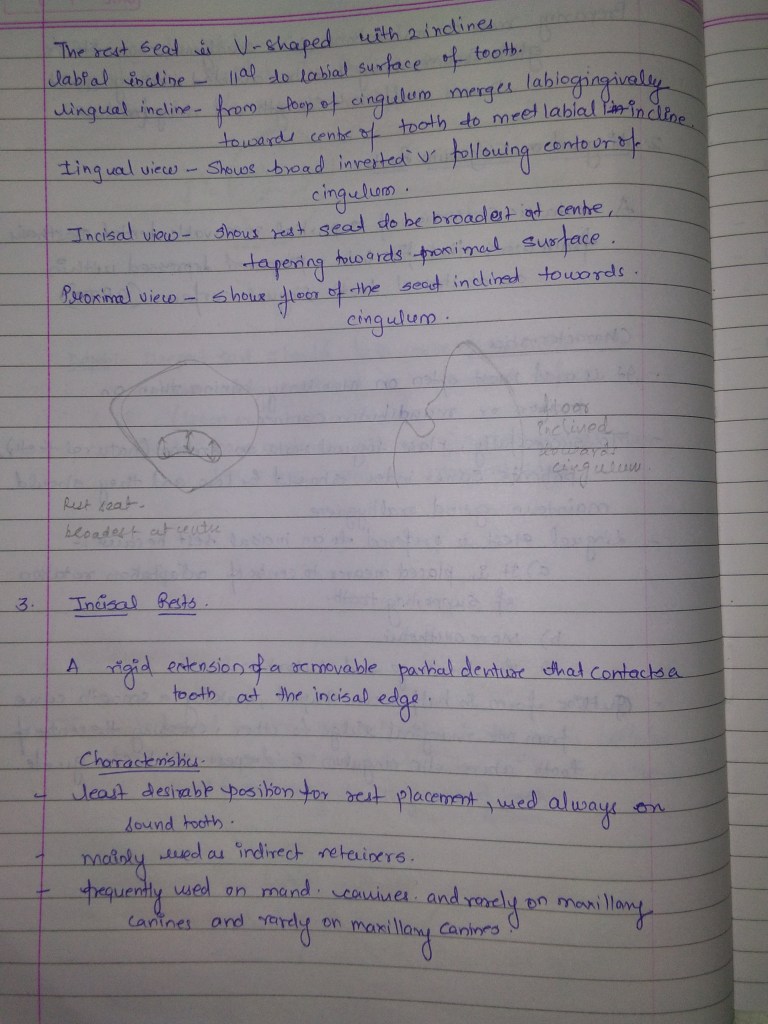 The rest seat is V-shaped with 2 inclines
labial incline - llal to labial surface of tooth.
lingual incline - from top of cingulum merges labiogingivally
towards centre of tooth to meet labial incline.
Lingual view - Shows broad inverted V following contour of
cingulum.
Incisal view - shows rest seat to be broadest at centre,
tapering towards proximal surface.
Proximal view - shows floor of the seat inclined towards.
cingulum.
floor
inclined
towards
cingulum
Rest seat.
broadest at centre
3. Incisal Rests.
A rigid extension of a removable partial denture that contacts a
tooth at the incisal edge.
Characteristics.
- least desirable position for rest placement, used always on
sound tooth.
- mainly used as indirect retainers.
- frequently used on mand. canines. and rarely on maxillary
canines and rarely on maxillary canines.